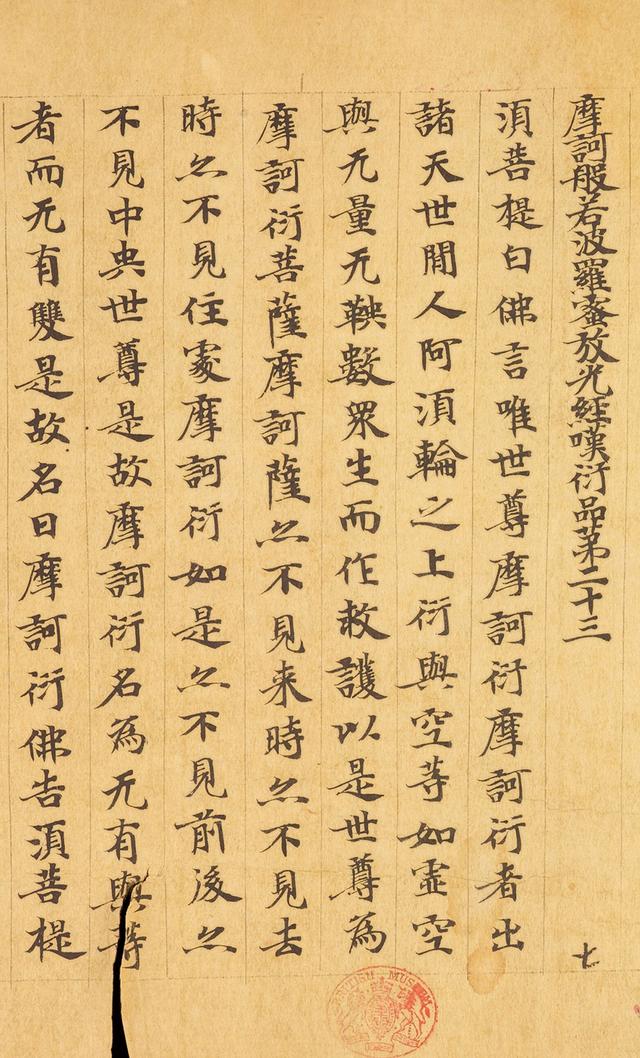 摩訶般若波羅蜜放光經嘆衍品第二十三
七
須菩提白佛言唯世尊摩訶衍摩訶衍者出
諸天世間人阿須輪之上衍與空等如虛空
與无量无鞅數眾生而作救護以是世尊為
摩訶衍菩薩摩訶薩亦不見来時亦不見去
時亦不見住處摩訶衍如是亦不見前後亦
不見中央世尊是故摩訶衍名為无有與等
者而无有雙是故名曰摩訶衍佛告須菩提
BRITISH MUSEUM